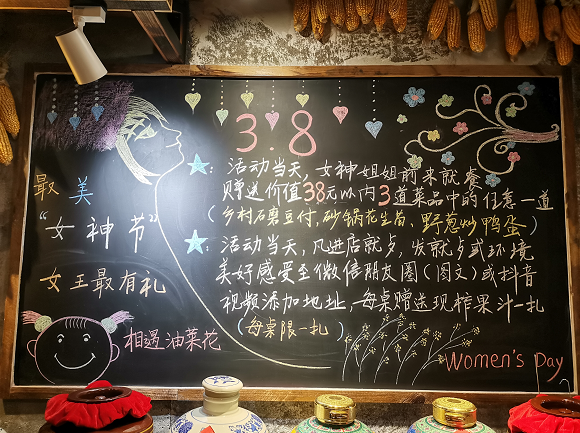 3.8
最美
“女神节”
女王最有礼
相遇油菜花
★：活动当天，女神姐姐前来就餐
赠送价值38元以内3道菜品中的任意一道
（乡村石磨豆付，砂锅花生苗、野葱炒鸭蛋）
★：活动当天，凡进店就点，发就点或环境
美好感受至微信朋友圈（图文）或抖音
视频添加地址，每桌赠送现榨果汁一扎
（每桌限一扎）
Women's Day